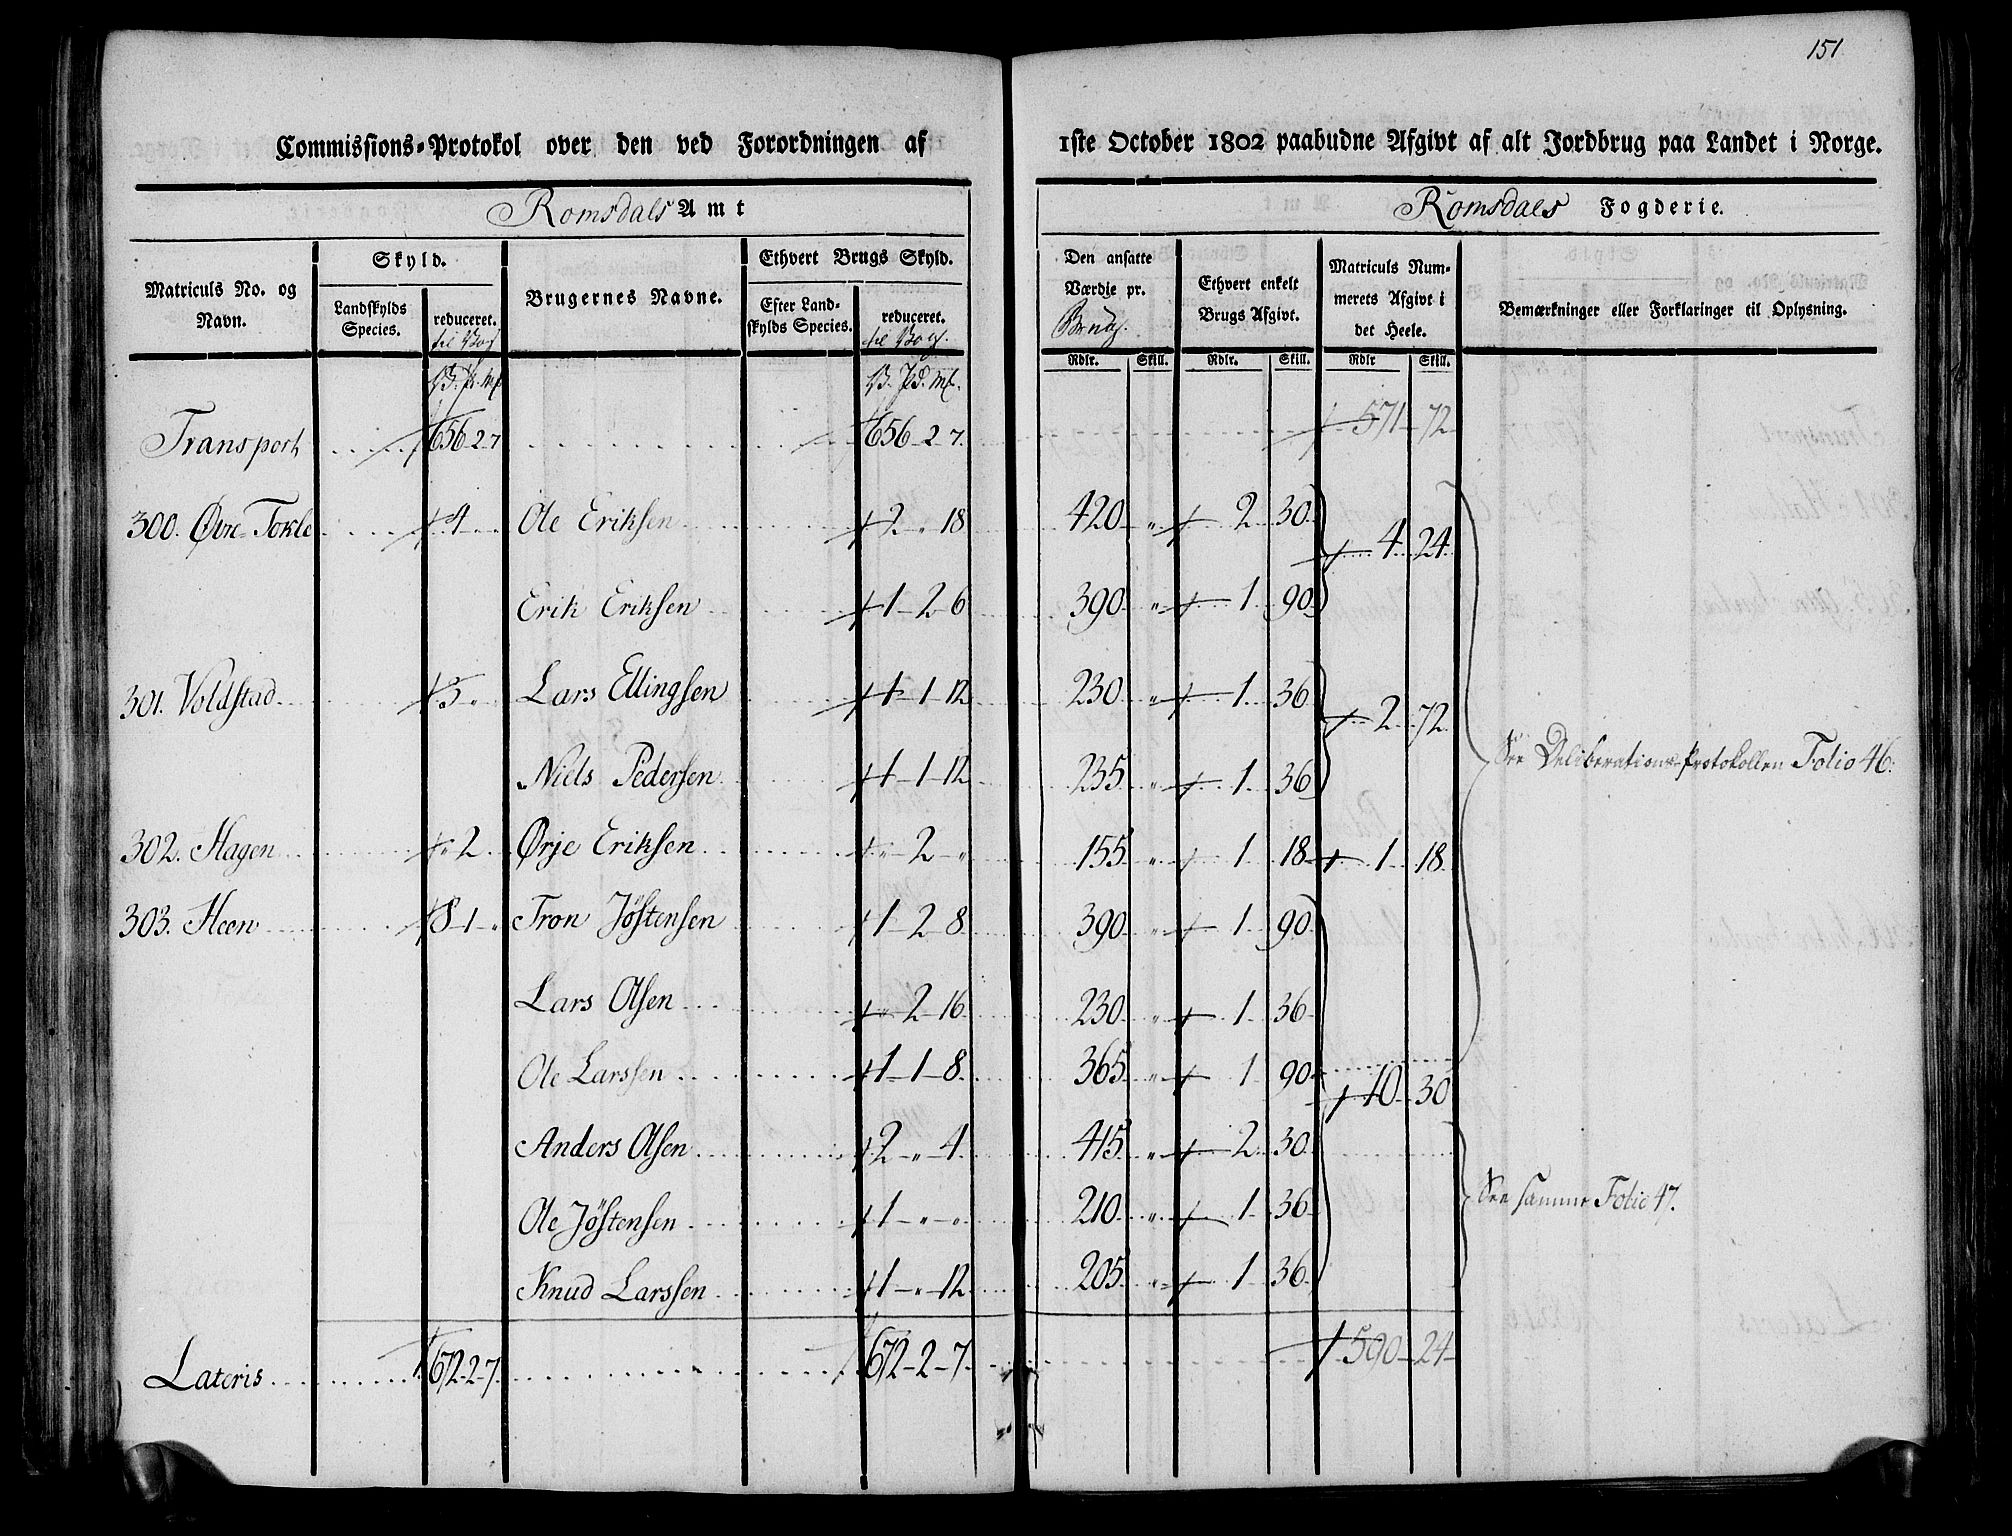 151
Commissions-Protokol over den ved Forordningen af 1ste October 1802 paabudne Afgivt af alt Jordbrug paa Landet i Norge.
Romsdals Amt
Romsdals Fogderie.
Matriculs No. og Navn.
Skyld.
Landskylds Species.
reduceret.
til Vog
Brugernes Navne.
Ethvert Brugs Skyld.
Efter Landskylds Species.
reduceret.
til Vog.
Den ansatte Værdie pr. Brug.
Ethvert enkelt Brugs Afgivt.
Matriculs Nummerets Afgivt i det Heele.
Bemærkninger eller Forklaringer til Oplysning.
Rdlr. Skill. Rdlr. Skill. Rdlr Skill.
V. Pd. Mk. V. Pd. Mk.
Transport 656-2-7 656-2-7. 571-72
300. Øvre-Tokle 4 Ole Eriksen 2 " 18 420 " 2 30 4 24
Erik Eriksen 1-2-6 390 " 1 90
301. Voldstad 5 " Lars Ellingsen 1-1-12 230 " 1 36 2 72
Niels Pedersen 1-1-12 235 " 1 36
See Deliberations-Protokollen Folio 46.
302. Hagen " 2 Ørje Eriksen " 2 " 155 " 1 18 1 18
303. Heen 8-1-" Tron Jöstensen 1-2-8 390 " 1 90
Lars Olsen " 2-16 230 " 1 36
Ole Larssen 1-1-8 365 " 1 90 10 30
Anders Olsen 2 " 4 415 " 2 30
Ole Jöstensen 1-"-" 210 " 1 36
See samme Folie 47.
Knud Larssen 1-"-12 205 " 1 36
Lateris 672-2-7 672-2-7 590-24